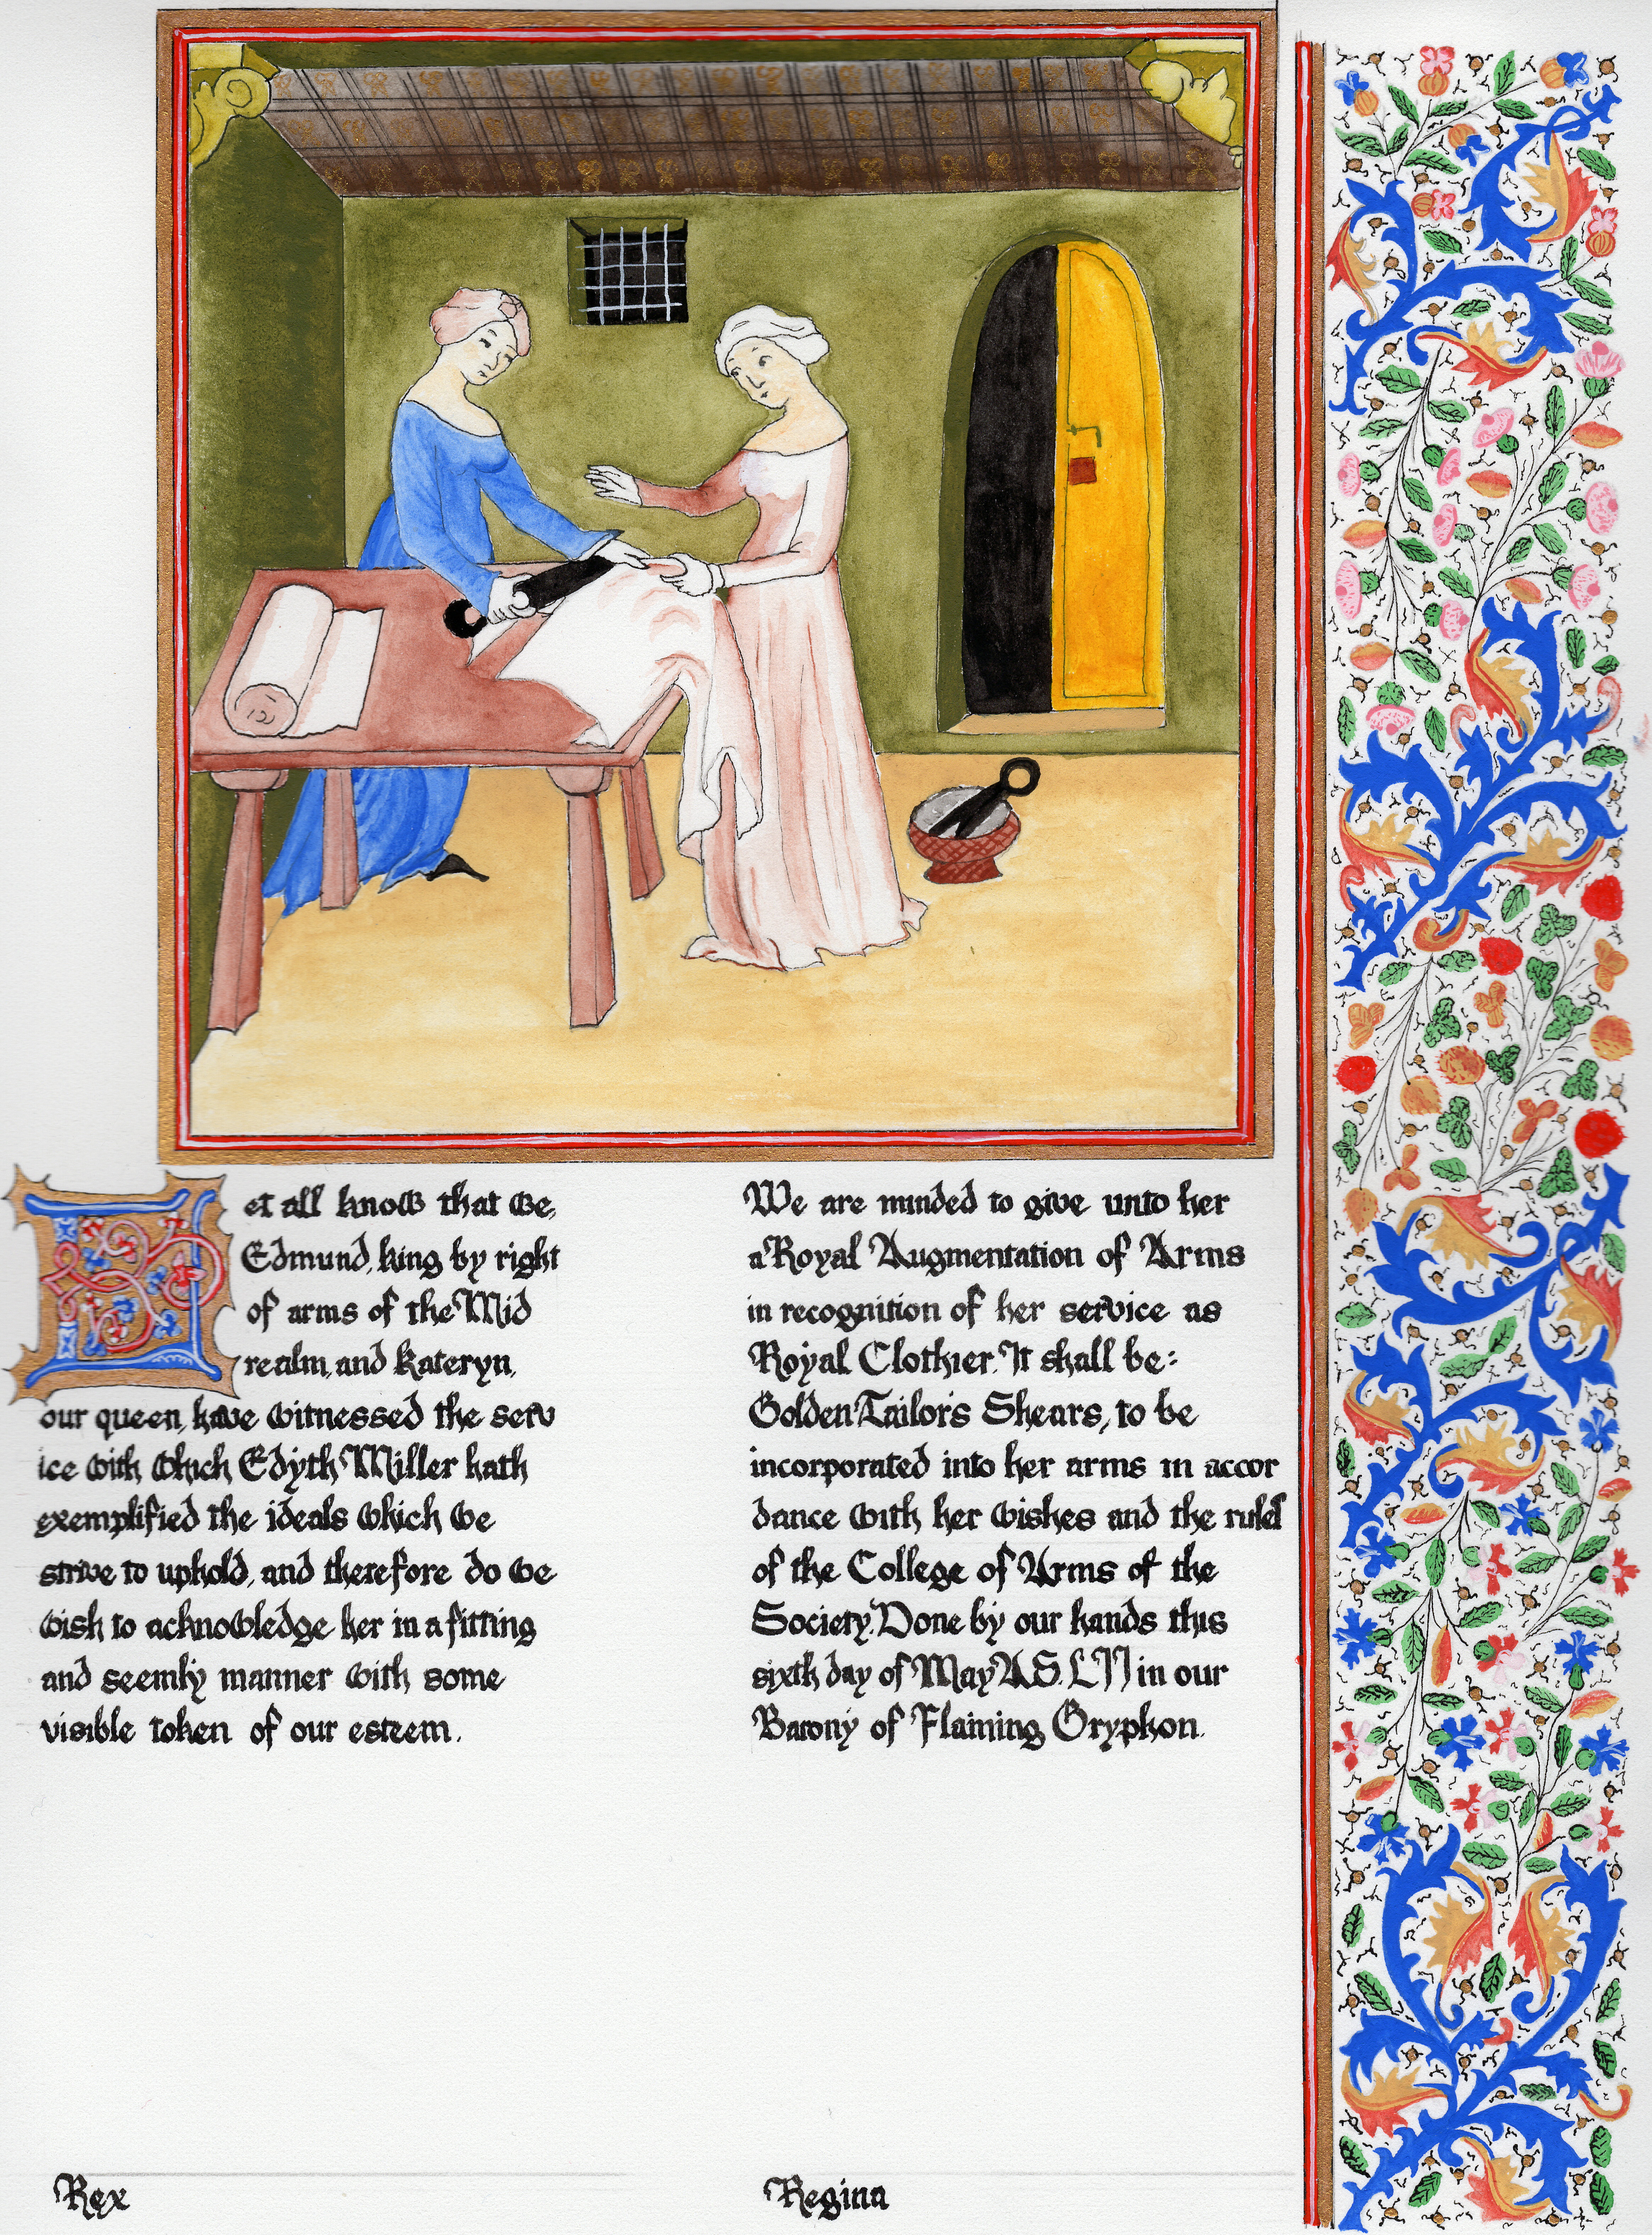 Let all know that we,
Edmund, king by right
of arms of the Mid
realm, and Kateryn,
our queen, have witnessed the serv
ice with which Edyth Miller hath
exemplified the ideals which we
strive to uphold, and therefore do we
wish to acknowledge her in a fitting
and seemly manner with some
visible token of our esteem.
We are minded to give unto her
a Royal Augmentation of Arms
in recognition of her service as
Royal Clothier. It shall be:
Golden Tailor's Shears, to be
incorporated into her arms in accor
dance with her wishes and the rules
of the College of Arms of the
Society. Done by our hands this
sixth day of May A.S. LII in our
Barony of Flaming Gryphon.
Rex
Regina